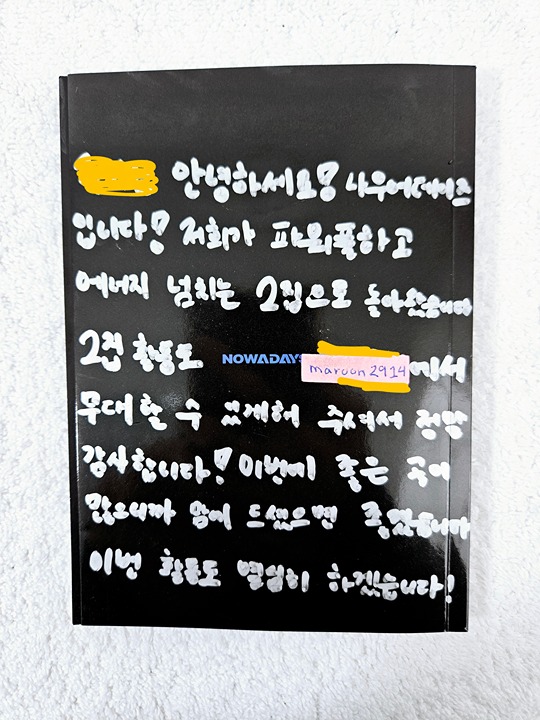 안녕하세요! 나우어데이즈
입니다! 저희가 파워풀하고
에너지 넘치는 2집으로 돌아왔습니다
2집 활동도 NOWADAYS maroon2914 에서
무대할 수 있게해 주셔서 정말
감사합니다! 이번에 좋은 곡이
많으니까 맘에 드셨으면 좋겠습니다
이번 활동도 열심히 하겠습니다!